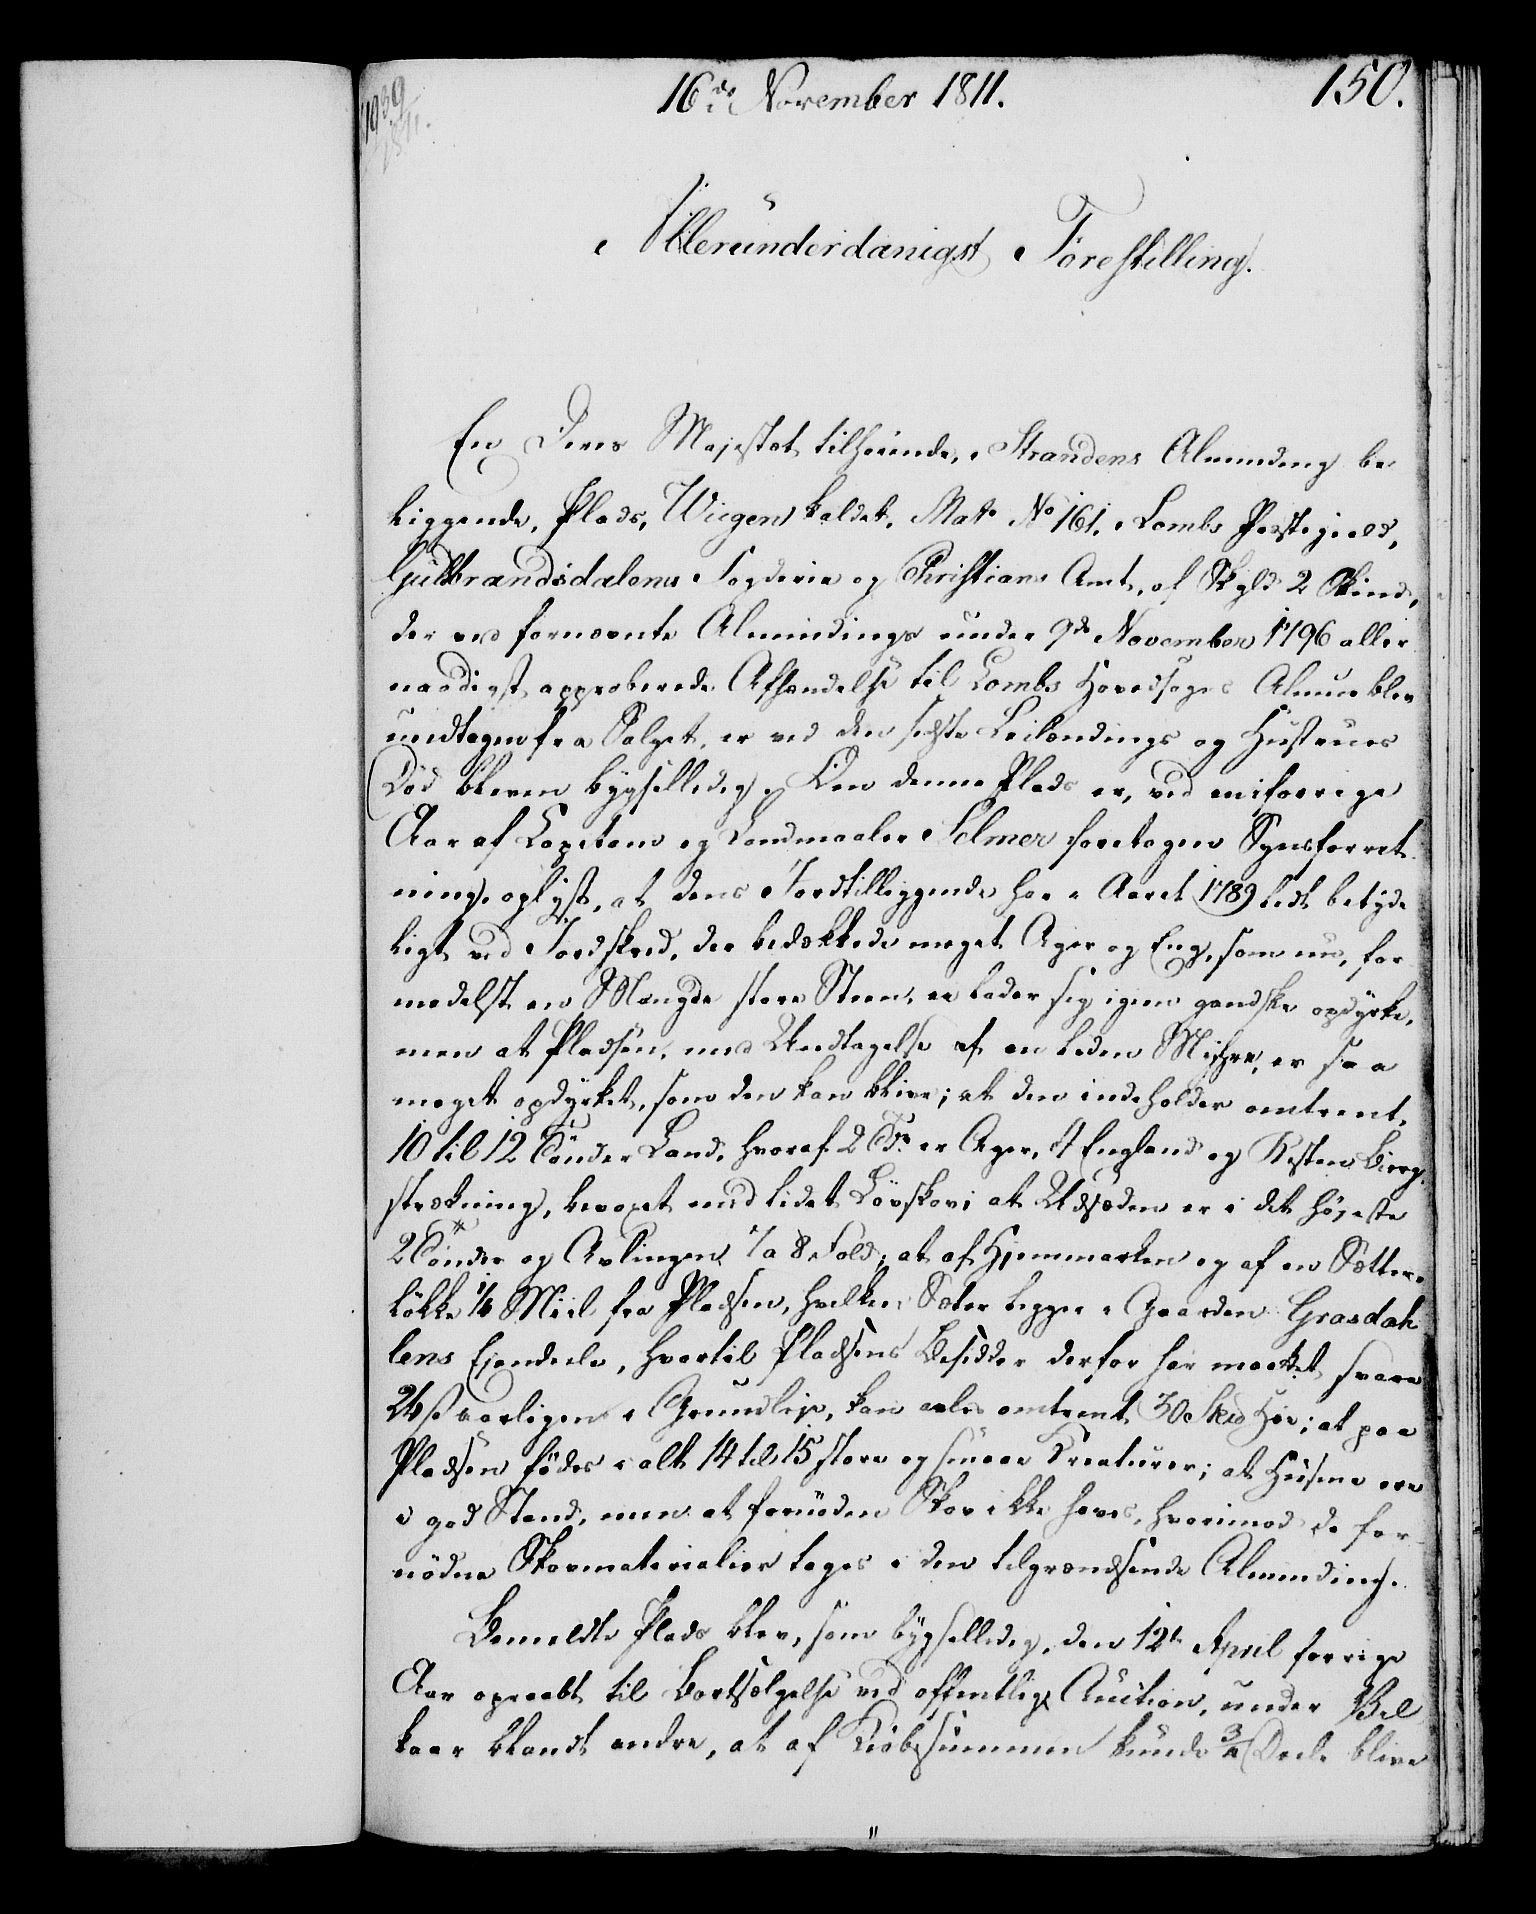 1939
1811.
16de November 1811.
150.
Allerunderdanigst Forestilling.
En Deres Majestæt tilhørende, i Strandens Alminding be
liggende, Plads, Wiigen kaldet, Matr. No 161. i Lombs Præstegield,
Guldbrandsdalens Fogderie og Christians Amt, af Skyld 2 Skind,
der ved fornævnte Almindings under 9de November 1796 aller
naadigst approberede Afhændelse til Lombs Hovedsogns Almue blev
undtagen fra Salget, er ved den sidste Leilændings og Hustrues
Død bleven bygselledig. Om denne Plads er, ved en i forrige
Aar af Capitain og Landmaaler Selmer foretagen Synsforret
ning, oplyst, at dens Jordtilliggende har i Aaret 1789 lidt betyde
ligt ved Jordskred, der bedækkede meget Ager og Eng, som nu, for
medelst en Mængde store Steen, ei lader sig igien gandske opdyrke,
men at Pladsen, med Undtagelse af en liden Myhre, er saa
meget opdyrket, som den kan blive; at den indeholder omtrent
10 til 12 Tønder Land, hvoraf 2 Tdr er Ager, 4 England og Resten Bierg
strækning, bevoxet med lidet Løvskov; at Udsæden er i det høieste
2 Tønder og Avlingen 7 a 8 Fold; at af Hjemmarken og af en Sætter
løkke 1/4 Miil fra Pladsen, hvilken Sæter ligger i Gaarden Grasdah
lens Ejendeele, hvortil Pladsens Besidder derfor har maattet svare
24 ß aarligen i Grundleje, kan avles omtrent 30 Læs Høe; at paa
Pladsen fødes i alt 14 til 15 store og smaae Kreaturer; at Husene ere
i god Stand, men at fornøden Skov ikke haves, hvorimod de for
nødne Skovmaterialier tages i den tilgrændsende Alminding.
Bemeldte Plads blev, som bygselledig, den 12te April forrige
Aar opraabt til Bortsælgelse ved offentlig Auction, under Vil
kaar blandt andre, at af Kiøbesummen kunde 3/4 Deele blive
"